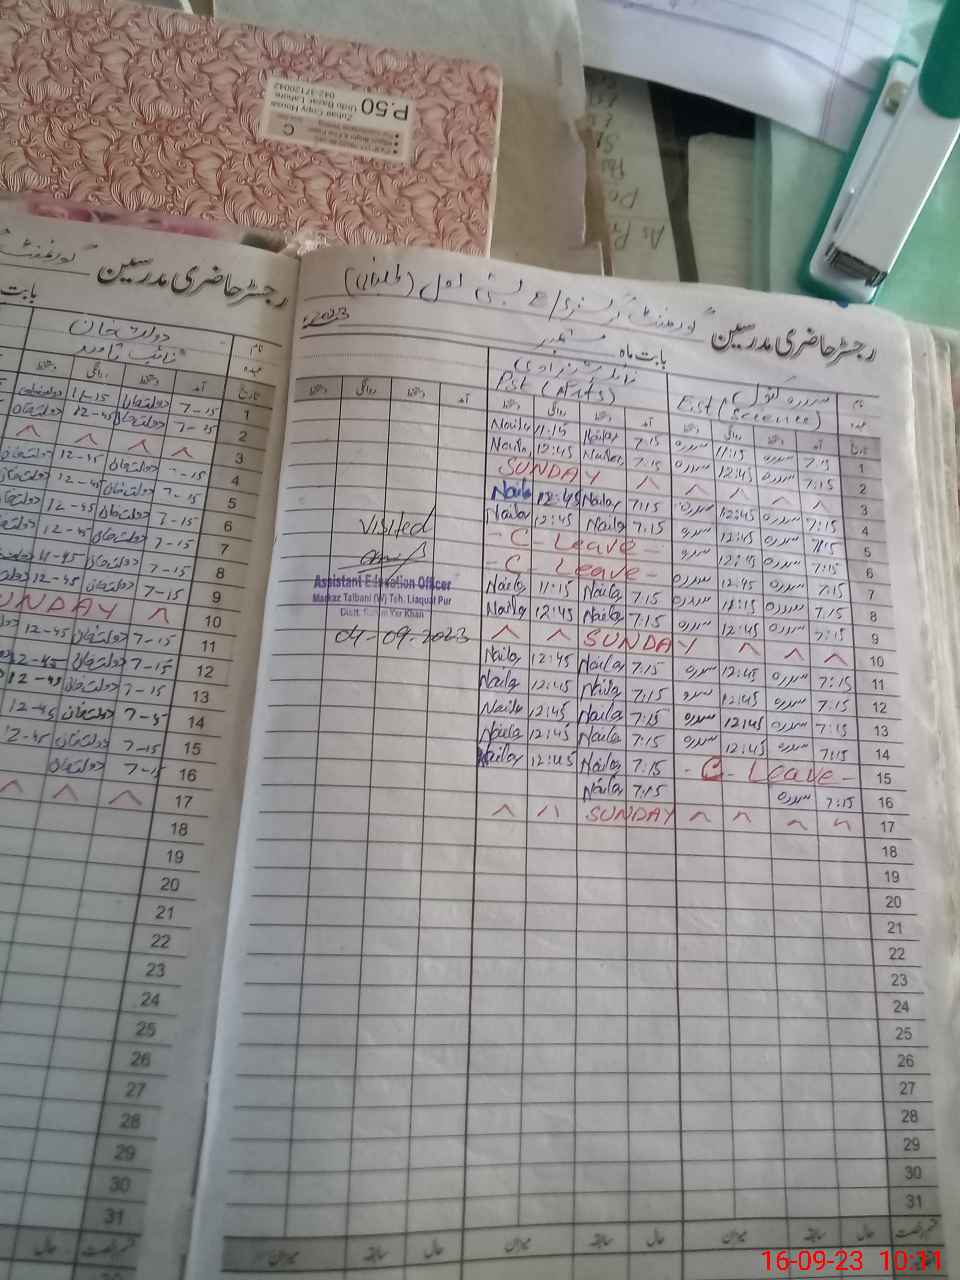 P.50
Zubair Copy House
Urdu Bazar Lahore
042-37120042
رجسٹر حاضری مدرسین
گورنمنٹ
بابت
نام دولت خان
عہدہ نائب قاصد
تاریخ آمد دستخط روانگی دستخط
1 7-15 دولت خان 11-15 دولت خان
2 7-15 دولت خان 12-45 دولت خان
3
4 7-15 دولت خان 12-45 دولت خان
5 7-15 دولت خان 12-45 دولت خان
6 7-15 دولت خان 12-45 دولت خان
7 7-15 دولت خان 12-45 دولت خان
8 7-15 دولت خان 11-45 دولت خان
9 7-15 دولت خان 12-45
10 SUNDAY
11 7-15 دولت خان 12-45
12 7-15 دولت خان 12-45
13 7-15 دولت خان 12-45
14 7-45 دولت خان 12-45
15 7-15 دولت خان 12-45
16 7-15 دولت خان
17
18
19
20
21
22
23
24
25
26
27
28
29
30
31
حال
رجسٹر حاضری مدرسین گورنمنٹ
بابت ماہ ستمبر 2023ء
نام سدرہ بتول
عہدہ EST (Science) PST (Arts)
تاریخ آمد دستخط روانگی دستخط آمد دستخط روانگی دستخط آمد دستخط روانگی دستخط
1 7:15 سدرہ 11:15 سدرہ 7:15 Naila 11:15 Naila
2 7:15 سدرہ 12:45 سدرہ 7:15 Naila 12:45 Naila
3 SUNDAY
4 7:15 سدرہ 12:45 سدرہ 7:15 Naila 12:45 Naila
5 7:15 سدرہ 12:45 سدرہ 7:15 Naila 12:45 Naila
6 7:15 سدرہ 12:45 سدرہ - C - Leave -
7 7:15 سدرہ 12:45 سدرہ - C - Leave -
8 7:15 سدرہ 11:15 سدرہ 7:15 Naila 11:15 Naila
9 7:15 سدرہ 12:45 سدرہ 7:15 Naila 12:45 Naila
10 SUNDAY
11 7:15 سدرہ 12:45 سدرہ 7:15 Naila 12:45 Naila
12 7:15 سدرہ 12:45 سدرہ 7:15 Naila 12:45 Naila
13 7:15 سدرہ 12:45 سدرہ 7:15 Naila 12:45 Naila
14 7:15 سدرہ 12:45 سدرہ 7:15 Naila 12:45 Naila
15 - C - Leave - 7:15 Naila 12:45 Naila
16 7:15 سدرہ 7:15 Naila
17 SUNDAY
18
19
20
21
22
23
24
25
26
27
28
29
30
31
حال سابقہ میزان حال سابقہ میزان حال سابقہ میزان
Visited
Assistant Education Officer
Markaz Talbani (W) Teh. Liaqat Pur
Distt. Rahim Yar Khan
04-09-2023
16-09-23 10:11